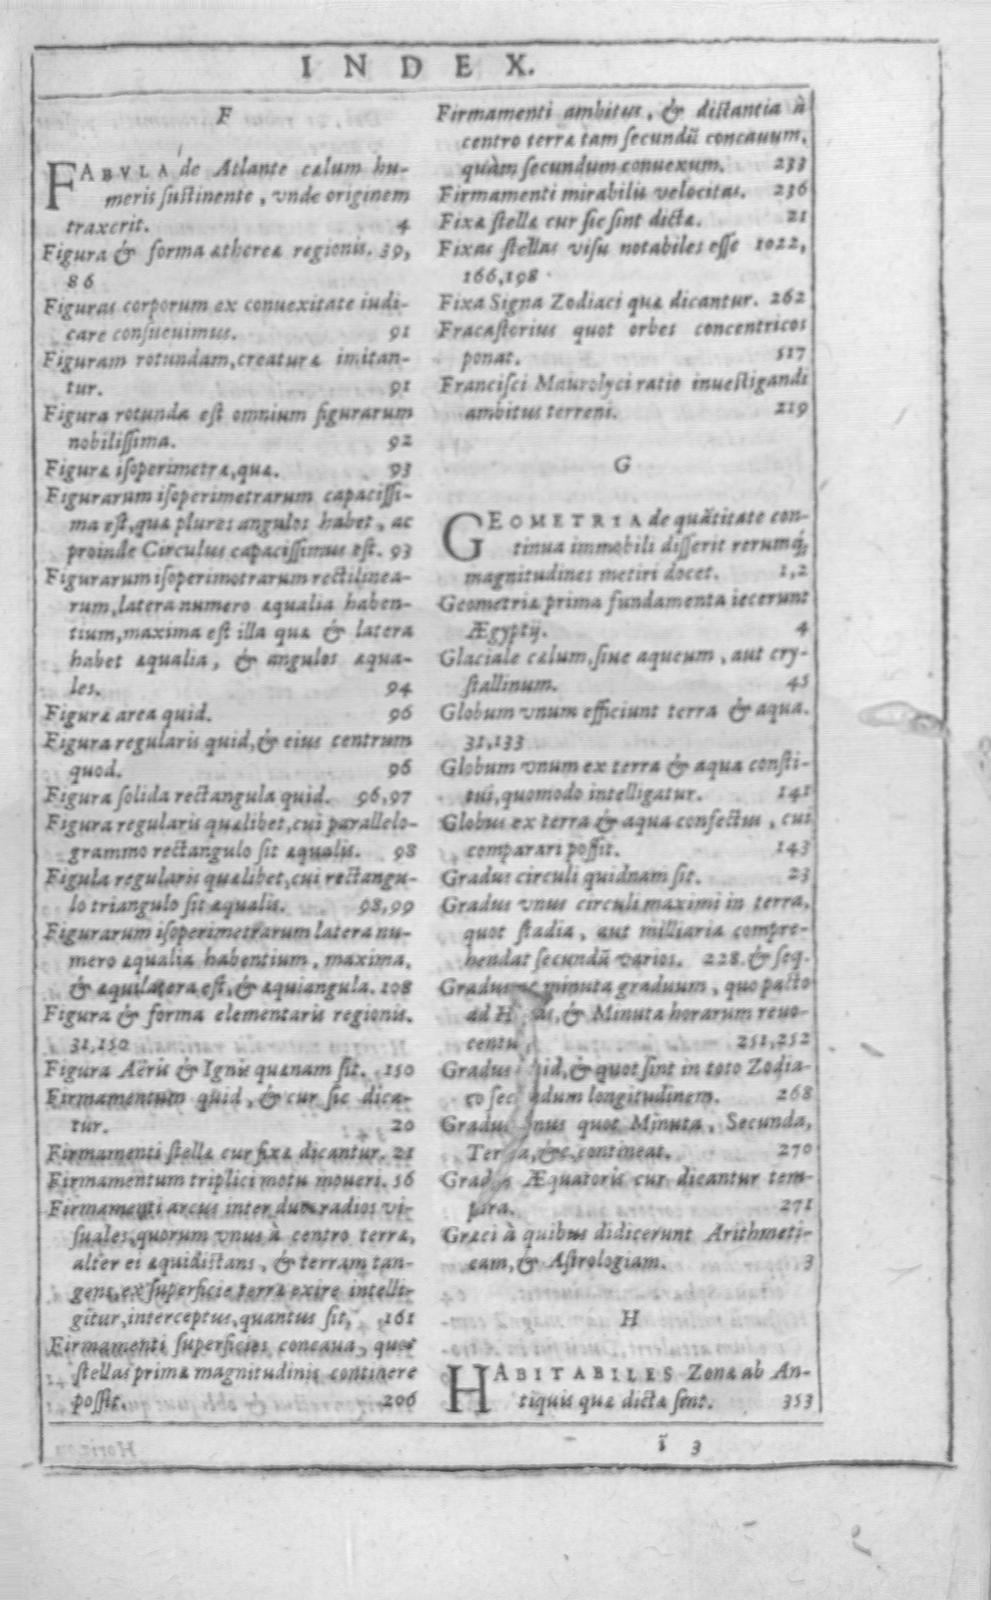 INDEX.
F
FABVLA de Atlante cælum hu-
meris sustinente, vnde originem
traxerit. 4
Figura & forma æthereæ regionis. 39,
86
Figuras corporum ex conuexitate iudi-
care consueuimus. 91
Figuram rotundam, creaturæ imitan-
tur. 91
Figura rotunda est omnium figurarum
nobilissima. 92
Figuræ isoperimetræ, quæ. 93
Figurarum isoperimetrarum capacissi-
ma est, quæ plures angulos habet, ac
proinde Circulus capacissimus est. 93
Figurarum isoperimetrarum rectilinea-
rum, latera numero æqualia haben-
tium, maxima est illa quæ & latera
habet æqualia, & angulos æqua-
les. 94
Figuræ area quid. 96
Figura regularis quid, & eius centrum
quod. 96
Figura solida rectangula quid. 96,97
Figura regularis quælibet, cui parallelo-
grammo rectangulo sit æqualis. 98
Figula regularis quælibet, cui rectangu-
lo triangulo sit æqualis. 98,99
Figurarum isoperimetrarum latera nu-
mero æqualia habentium, maxima,
& æquilatera est, & æquiangula. 108
Figura & forma elementaris regionis.
31,150
Figura Aëris & Ignis quænam sit. 150
Firmamentum quid, & cur sic dica-
tur. 20
Firmamenti stellæ cur fixæ dicantur. 21
Firmamentum triplici motu moueri. 56
Firmamenti arcus inter duos radios vi-
suales, quorum vnus à centro terræ,
alter ei æquidistans, & terram tan-
gens, ex superficie terræ exire intelli-
gitur, interceptus, quantus sit, 161
Firmamenti superficies concaua, quot
stellas primæ magnitudinis continere
possit. 206
Firmamenti ambitus, & distantia à
centro terræ tam secundũ concauum,
quàm secundum conuexum. 233
Firmamenti mirabilis velocitas. 236
Fixæ stellæ cur sic sint dictæ. 21
Fixas stellas visu notabiles esse 1022,
166,198
Fixa Signa Zodiaci quæ dicantur. 262
Fracastorius quot orbes concentricos
ponat. 517
Francisci Maurolyci ratio inuestigandi
ambitus terreni. 219
G
GEOMETRIA de quãtitate con-
tinua immobili disserit rerumq́;
magnitudines metiri docet. 1,2
Geometriæ prima fundamenta iecerunt
Ægyptij. 4
Glaciale cælum, siue aqueum, aut cry-
stallinum. 45
Globum vnum efficiunt terra & aqua.
31,133
Globum vnum ex terra & aqua consti-
tui, quomodo intelligatur. 141
Globus ex terra & aqua confectus, cui
comparari possit. 143
Gradus circuli quidnam sit. 23
Gradus vnus circuli maximi in terra,
quot stadia, aut milliaria compre-
hendat secundũ varios. 228. & seq.
Gradus minuta graduum, quo pacto
ad & Minuta horarum reuo-
centu 251,252
Gradus & quot sint in toto Zodia-
co longitudinem. 268
Gradu quot Minuta, Secunda,
&c. contineat. 270
Æquatoris cur dicantur tem-
pora. 271
Græci à quibus didicerunt Arithmeti-
cam, & Astrologiam. 3
H
HABITABILES Zonæ ab An-
tiquis quæ dictæ sint. 353
ĩ 3